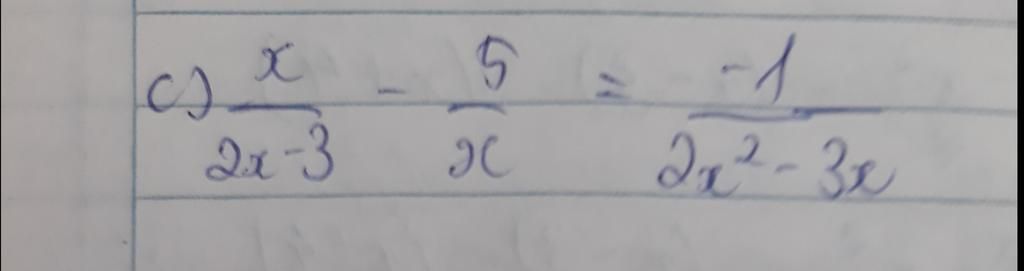 c) \frac{x}{2x-3} - \frac{5}{x} = \frac{-1}{2x^2-3x}